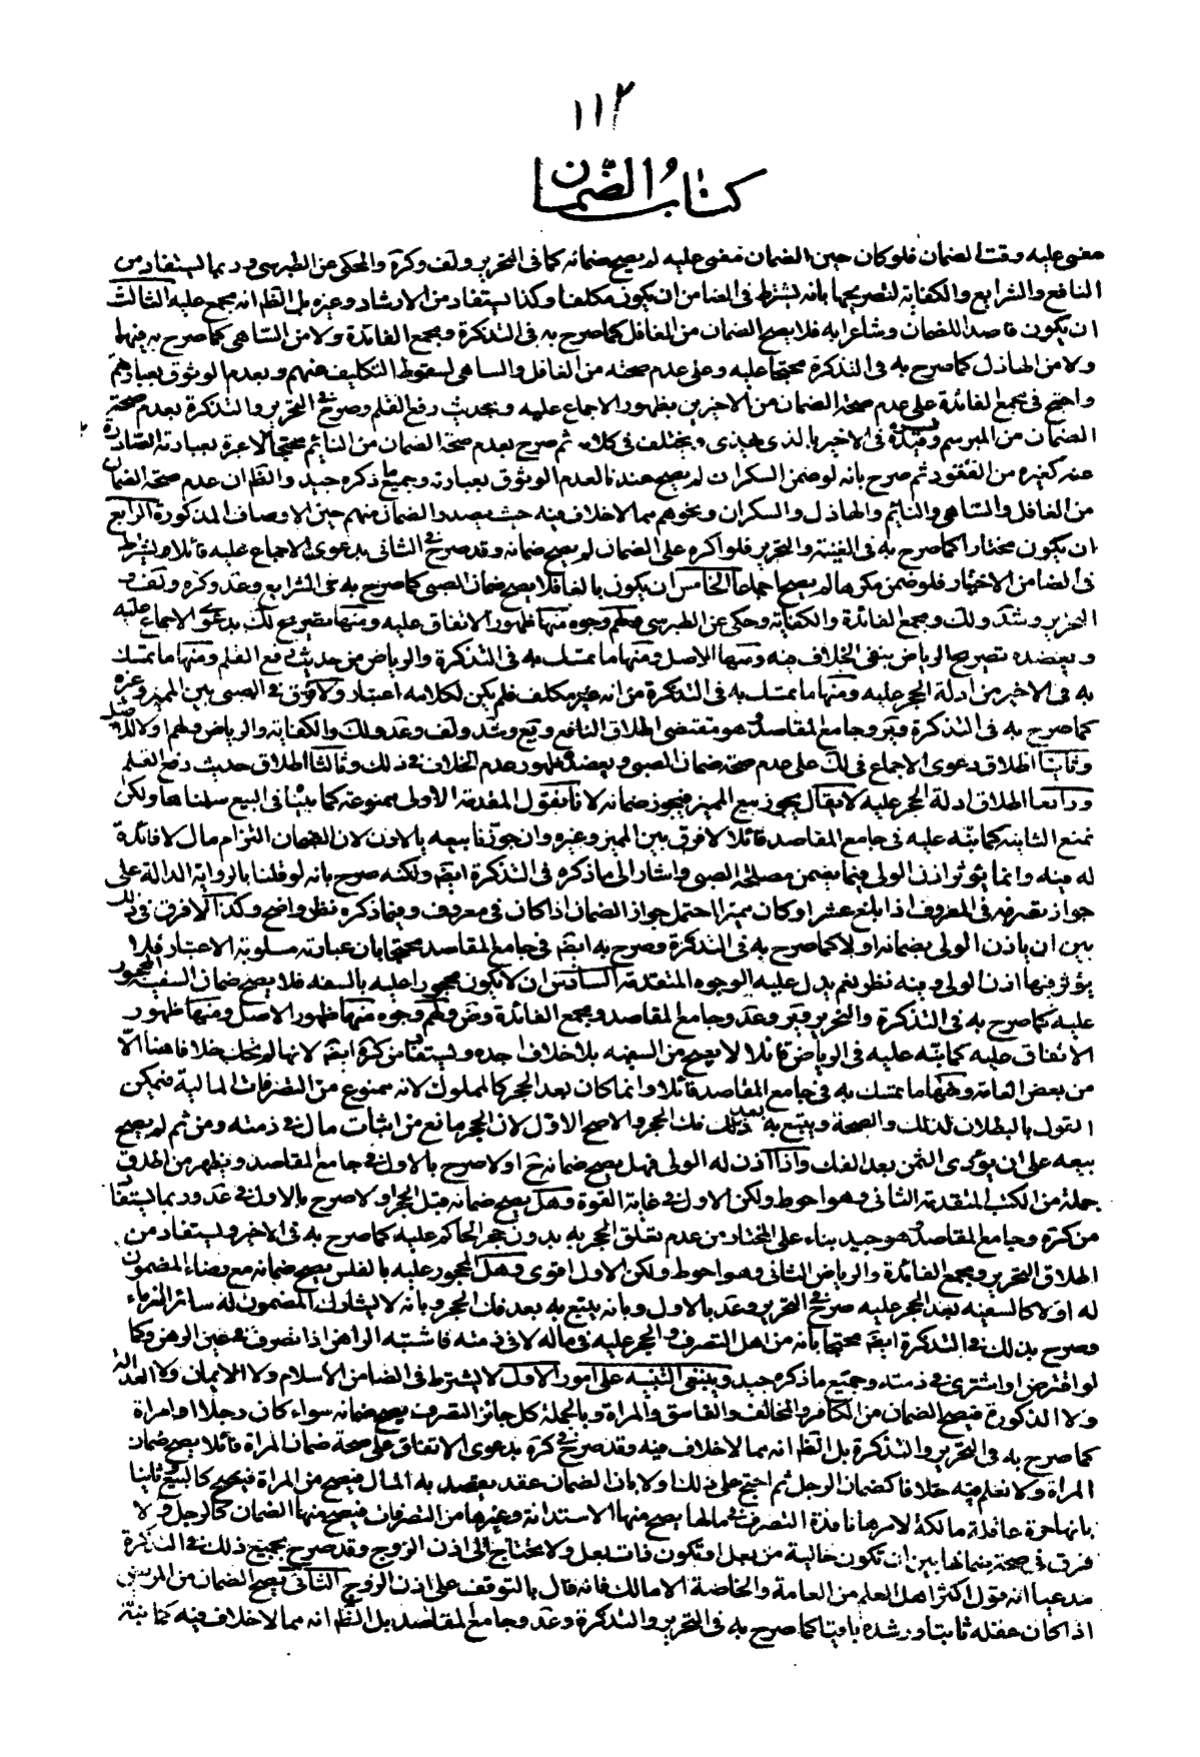 ١١٢
كتاب الضمان
مغمى عليه وقت الضمان فلو كان حين الضمان مغمى عليه لم يصح ضمانه كما في التحرير ولف وكرة والمحكى عن الطبرسى وربما يستفاد من
النافع والشرايع والكفاية لتصريحها بانه يشترط في الضامن ان يكون مكلفا وكذا يستفاد من الارشاد وغيره بل الظ انه مجمع عليه الثالث
ان يكون قاصدا للضمان وشاعرا به فلا يصح الضمان من الغافل كما صرح به في التذكرة ومجمع الفائدة ولا من الساهى كما صرح به فيهما
ولا من الهاذل كما صرح به في التذكرة محتجا عليه وعلى عدم صحته من الغافل والساهى لسقوط التكليف عنهم وبعدم الوثوق بعبارتهم
واحتج في مجمع الفائدة على عدم صحة الضمان من الاخيرين بظهور الاجماع عليه وبحديث رفع القلم وصرح في التحرير والتذكرة بعدم صحة
الضمان من المبرسم وقيده في الاخير بالذى يهذى ويختلف في كلامه ثم صرح بعدم صحة الضمان من النايم محتجا لا عبرة بعبارته الصادرة
عنه كغيره من العقود ثم صرح بانه لو ضمن السكران لم يصح عندنا لعدم الوثوق بعبارته وجميع ما ذكره جيد والظ ان عدم صحة الضمان
من الغافل والساهى والنايم والهاذل والسكران ونحوهم مما لا خلاف فيه حيث يصدر الضمان منهم حين الاوصاف المذكورة الرابع
ان يكون مختارا كما صرح به في الغنية والتحرير فلو اكره على الضمان لم يصح ضمانه وقد صرح في الثانى بدعوى الاجماع عليه قائلا ويشترط
في الضامن الاختيار فلو ضمن مكرها لم يصح اجماعا الخامس ان يكون بالغا فلا يصح ضمان الصبى كما صرح به في الشرايع وعد وكره ولف و
التحرير وشد ولك ومجمع الفائدة والكفاية وحكى عن الطبرسى ولهم وجوه منها ظهور الاتفاق عليه ومنها تصريح لك بدعوى الاجماع عليه
ويعضده تصريح الرياض بنفى الخلاف فيه ومنها الاصل ومنها ما تمسك به في التذكرة والرياض من حديث رفع القلم ومنها ما تمسك
به في الاخير من ادلة الحجر عليه ومنها ما تمسك به في التذكرة من انه غير مكلف فلم يكن لكلامه اعتبار ولا فرق في الصبى بين المميز وغيره
كما صرح به في التذكرة وير وجامع المقاصد وهو مقتضى اطلاق النافع ويع وشد ولف وعد ولك والكفاية والرياض ولهم اولا الاصل
وثانيا اطلاق دعوى الاجماع في لك على عدم صحة ضمان الصبى ويعضده ظهور عدم الخلاف في ذلك وثالثا اطلاق حديث رفع القلم
ورابعا اطلاق ادلة الحجر عليه لا يقال يجوز بيع المميز فيجوز ضمانه لانا نقول المقدمة الاولى ممنوعة كما بينا في البيع سلمناها ولكن
نمنع الثانية كما نبه عليه في جامع المقاصد قائلا لا فرق بين المميز وغيره وان جوزنا بيعه بالاذن لان الضمان التزام مال لا فائدة
له فيه وانما يؤثر اذن الولى فيما يضمن مصلحة الصبى واشار الى ما ذكره في التذكرة ايض ولكنه صرح بانه لو قلنا بالرواية الدالة على
جواز تصرفه في المعروف اذا بلغ عشرا وكان مميزا احتمل جواز الضمان اذا كان في معروف وفيما ذكره نظر واضح وكذا لا فرق في ذلك
بين ان ياذن الولى بضمانه او لا كما صرح به في التذكرة وصرح به ايض في جامع المقاصد محتجا بان عبارته مسلوبة الاعتبار فلا
يؤثر فيها اذن الولى وفيه نظر نعم يدل عليه الوجوه المتقدمة السادس ان لا يكون محجورا عليه بالسفه فلا يصح ضمان السفيه المحجور
عليه كما صرح به في التذكرة والتحرير وير وعد وجامع المقاصد ومجمع الفائدة وض ولهم وجوه منها ظهور الاصل ومنها ظهور
الاتفاق عليه كما نبه عليه في الرياض قائلا لا يصح من السفيه بلا خلاف اجده ويستفاد من كرة ايض لانها لم تحك خلافا هنا الا
من بعض العامة ومنها ما تمسك به في جامع المقاصد قائلا وانما كان بعد الحجر كالمملوك لانه ممنوع من التصرفات المالية فيمكن
القول بالبطلان لذلك والصحة ويتبع به بعد ذلك فك الحجر والاصح الاول لان الحجر مانع من اثبات مال في ذمته ومن ثم لم يصح
بيعه على ان يؤدى الثمن بعد الفك واذا اذن له الولى فهل يصح ضمانه ح او لا صرح بالاول في جامع المقاصد ويظهر من اطلاق
جملة من الكتب المتقدمة الثانى وهو احوط ولكن الاول في غاية القوة وهل يصح ضمانه قبل الحجر او لا صرح بالاول في عد وربما يستفاد
من كرة وجامع المقاصد وهو جيد بناء على المختار من عدم تعلق الحجر به بدون حجر الحاكم عليه كما صرح به في الاخير ويستفاد من
اطلاق التحرير ومجمع الفائدة والرياض الثانى وهو احوط ولكن الاول اقوى وهل المحجور عليه بالفلس يصح ضمانه مع رضاء المضمون
له او لا كالسفيه بعد الحجر عليه صرح في التحرير وعد بالاول وبانه يتبع به بعد فك الحجر وبانه لا يشارك المضمون له سائر الغرماء
وصرح بذلك في التذكرة ايض محتجا بانه من اهل التصرف والحجر عليه في ماله لا في ذمته فاشبه الراهن اذا تصرف في غير الرهن وكما
لو اقترض او اشترى في ذمته وجميع ما ذكره جيد وينبغى التنبيه على امور الاول لا يشترط في الضامن الاسلام ولا الايمان ولا العدالة
ولا الذكورة فيصح الضمان من الكافر والمخالف والفاسق والمراة وبالجملة كل جائز التصرف يصح ضمانه سواء كان رجلا او امراة
كما صرح به في التحرير والتذكرة بل الظ انه مما لا خلاف فيه وقد صرح في كرة بدعوى الاتفاق على صحة ضمان المراة قائلا يصح ضمان
المراة ولا نعلم فيه خلافا كضمان الرجل ثم احتج على ذلك اولا بان الضمان عقد يقصد به المال فيصح من المراة فيصح كالبيع ثانيا
بانها حرة عاقلة مالكة لامرها نافذة التصرف في مالها يصح منها الاستدانة وغيرها من التصرفات فيصح منها الضمان كالرجل ولا
فرق في صحة ضمانها بين ان تكون خالية من بعل او تكون ذات بعل ولا يحتاج الى اذن الزوج وقد صرح بجميع ذلك في التذكرة
مدعيا انه قول اكثر اهل العلم من العامة والخاصة الا مالك فانه قال بالتوقف على اذن الزوج الثانى يصح الضمان من المريض
اذا كان عقله ثابتا ورشده باقيا كما صرح به في التحرير والتذكرة وعد وجامع المقاصد بل الظ انه مما لا خلاف فيه كما نبه